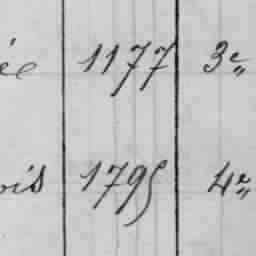 ée 1177 3e"
ois 1795 4e"